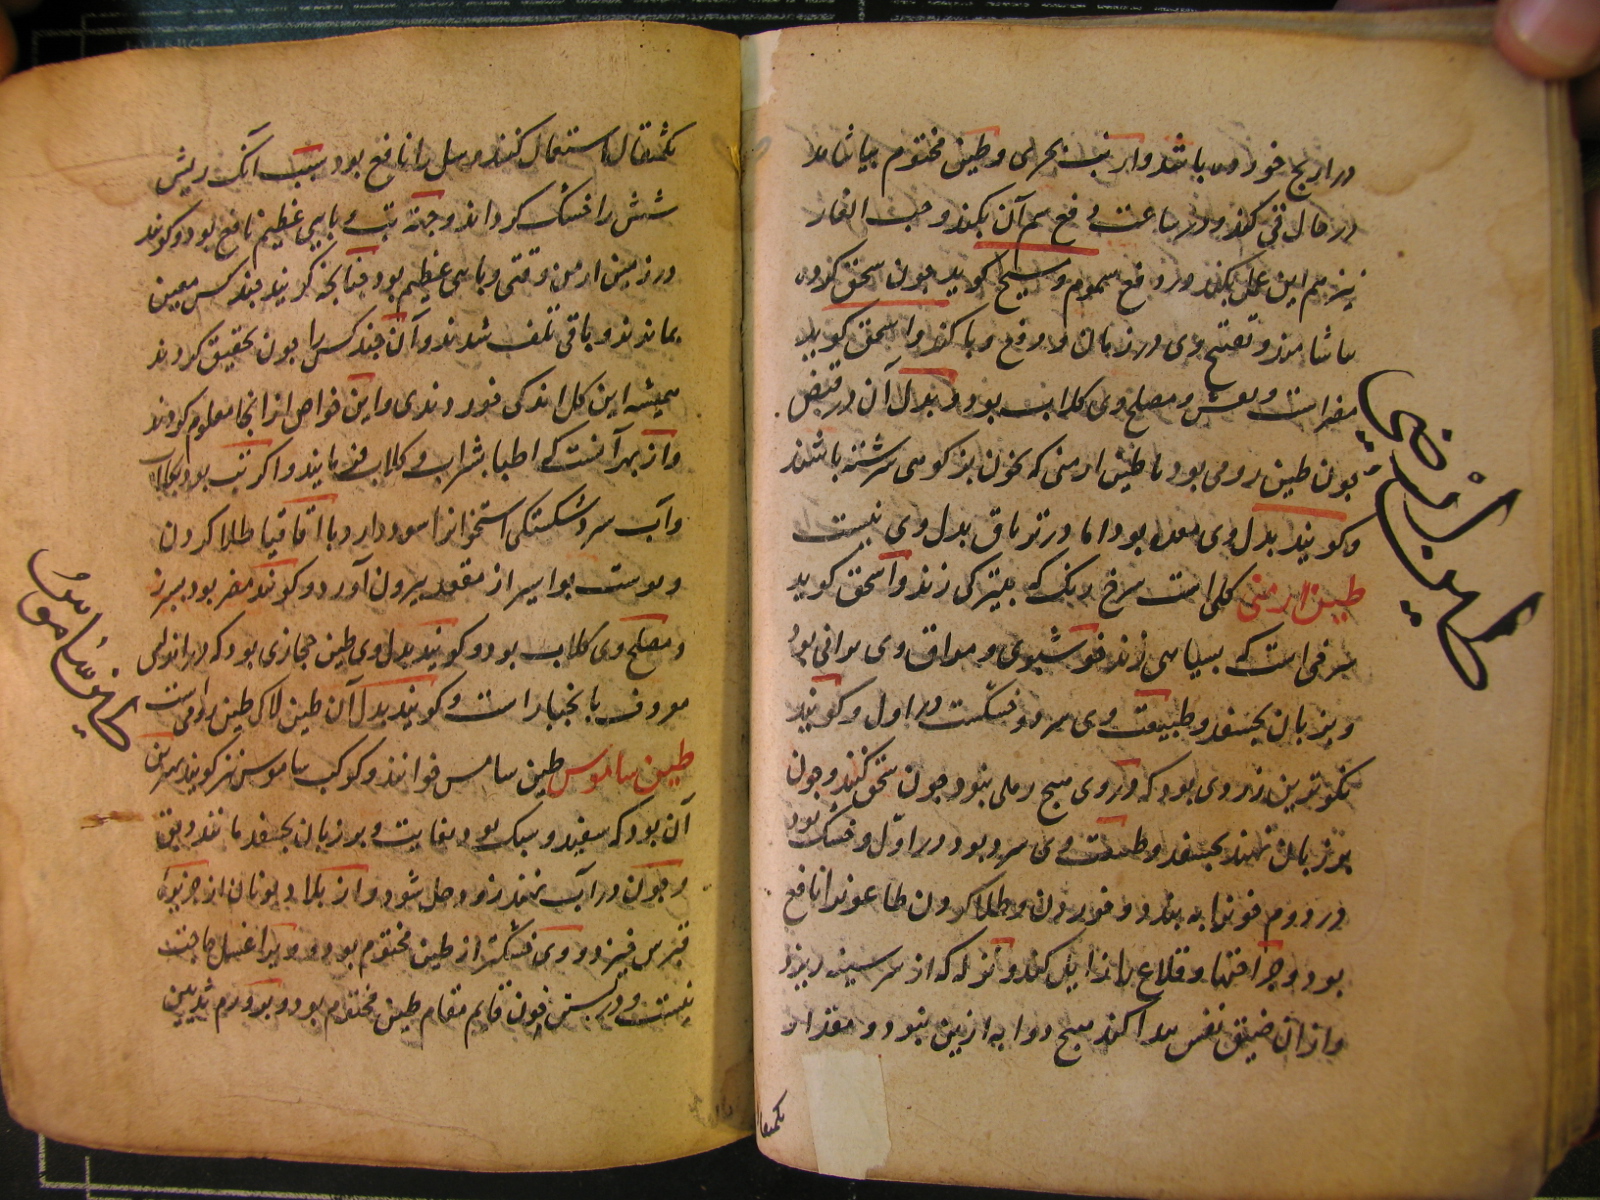 در ارنج خورده باشد و ارنب بحری و طین مختوم بیاشامد
در حال قی کند و در ساعت دفع سم آن بکند و حب الغار
نیز هم این عمل بکند در دفع سموم و مسیح کوید چون سحق کرده
بیاشامند و تفتیح وی در زمان و دفع وبا کند و اسحق کوید
مضرات و بعش و مصلح وی کلاب بود و بدل آن در قبض
چون طین رومی بود یا طین ارمنی که بخون بز کوهی سرشته باشند
و کویند بدل وی مغره بود اما در تریاق بدل وی نیست
طین ارمنی کلی است سرخ رنک که بتیرکی زند و اسحق کوید
سرخی است که بسیاهی زند خوشبوی و مذاق وی ترابی بود
و بزبان بچسفد و طبیعت وی سرد و خشکست در اول و کویند
نیکوترین زردی بود که در وی هیچ رملی نبود چون سحق کنند و چون
بر زبان نهند بچسفد و طبیعت وی سرد بود در اول و خشک بود
در دوم خونرا به بندد و خوردن و طلا کردن طاعونرا نافع
بود و جراحتها و قلاع را زایل کند و نزله که از سر سینه ریزد
و از آن ضیق نفس پیدا کند هیچ دوا به ازین نبود و مقدار
یکمثقال
طین ارمنی
یکمثقال استعمال کنند و سل را نافع بود سبب آنک ریش
شش را خشک کرداند و جهة تب وبایی عظیم نافع بود و کویند
در زمین ارمن وقتی وبایی عظیم بود چنانچه کویند چند کس معین
بماندند و باقی تلف شدند و آن چند کس را چون تحقیق کردند
همیشه این کل اندکی خوردندی و این خواص از انجا معلوم کردند
و از بهر آنست که اطبا بشراب و کلاب فرمایند و اکر تب بود بکلاب
و آب سرد و شکستکی استخوانرا سود دارد با اقاقیا طلا کردن
و پوست بواسیر از مقعد بیرون آورد و کویند مضر بود بسپرز
و مصلح وی کلاب بود و کویند بدل وی طین حجازی بود که در اندلس
معروف با بخبار است و کویند بدل آن طین لاک طین رومی است
طین ساموس طین سامس خوانند و کوکب ساموس نیز کویند بهترین
آن بود که سفید و سبک بود بغایت و بر زبان بچسفد مانند دبق
و چون در آب نهند زود حل شود و از بلاد یونان از جزیره
قبرس خیزد و وی خشکتر از طین مختوم بود و ویرا غسل حاجت
نیست و در بستن خون قایم مقام طین مختوم بود و بر ورم ثدیین
طین ساموس